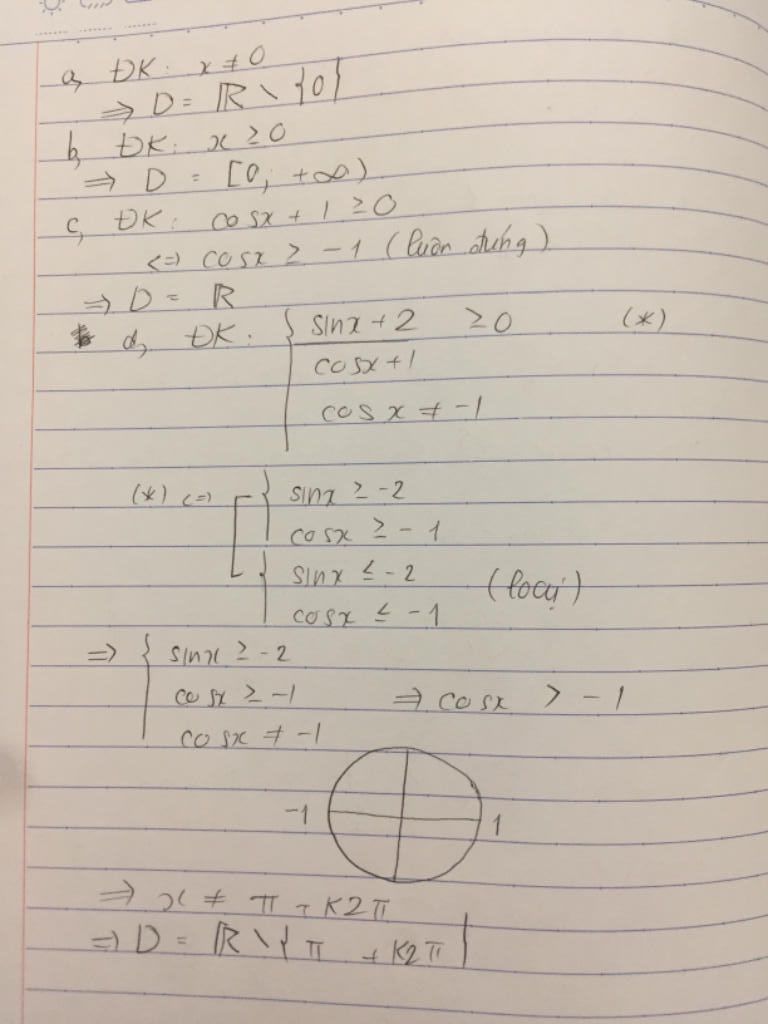 a, ĐK: x ≠ 0
=> D = ℝ \ {0}
b, ĐK: x ≥ 0
=> D = [0; +∞)
c, ĐK: cosx + 1 ≥ 0
<=> cosx ≥ -1 (luôn đúng)
=> D = ℝ
d, ĐK: { sinx + 2 / cosx + 1 ≥ 0 (*)
cosx ≠ -1
(*) <=> [ { sinx ≥ -2
cosx ≥ -1
{ sinx ≤ -2 (loại)
cosx ≤ -1
=> { sinx ≥ -2
cosx ≥ -1 => cosx > -1
cosx ≠ -1
-1 1
=> x ≠ π + k2π
=> D = ℝ \ { π + k2π }